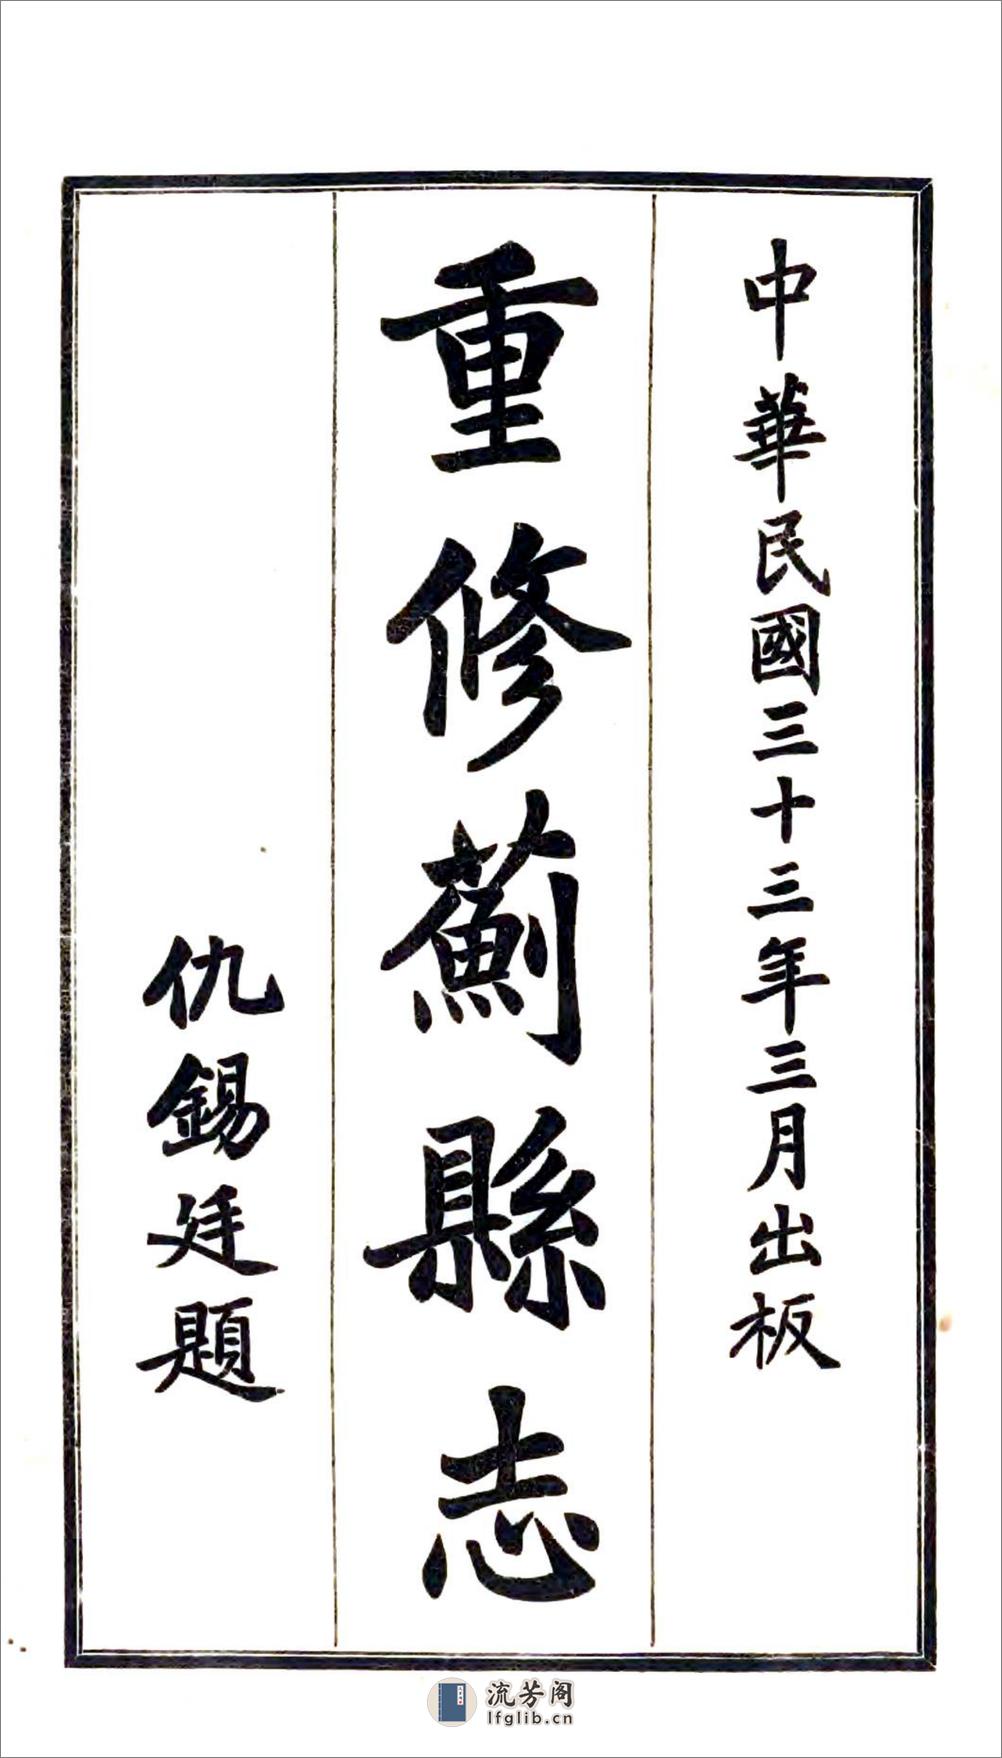 中華民國三十三年三月出板
重修薊縣志
仇錫廷題
流芳阁
lfglib.cn